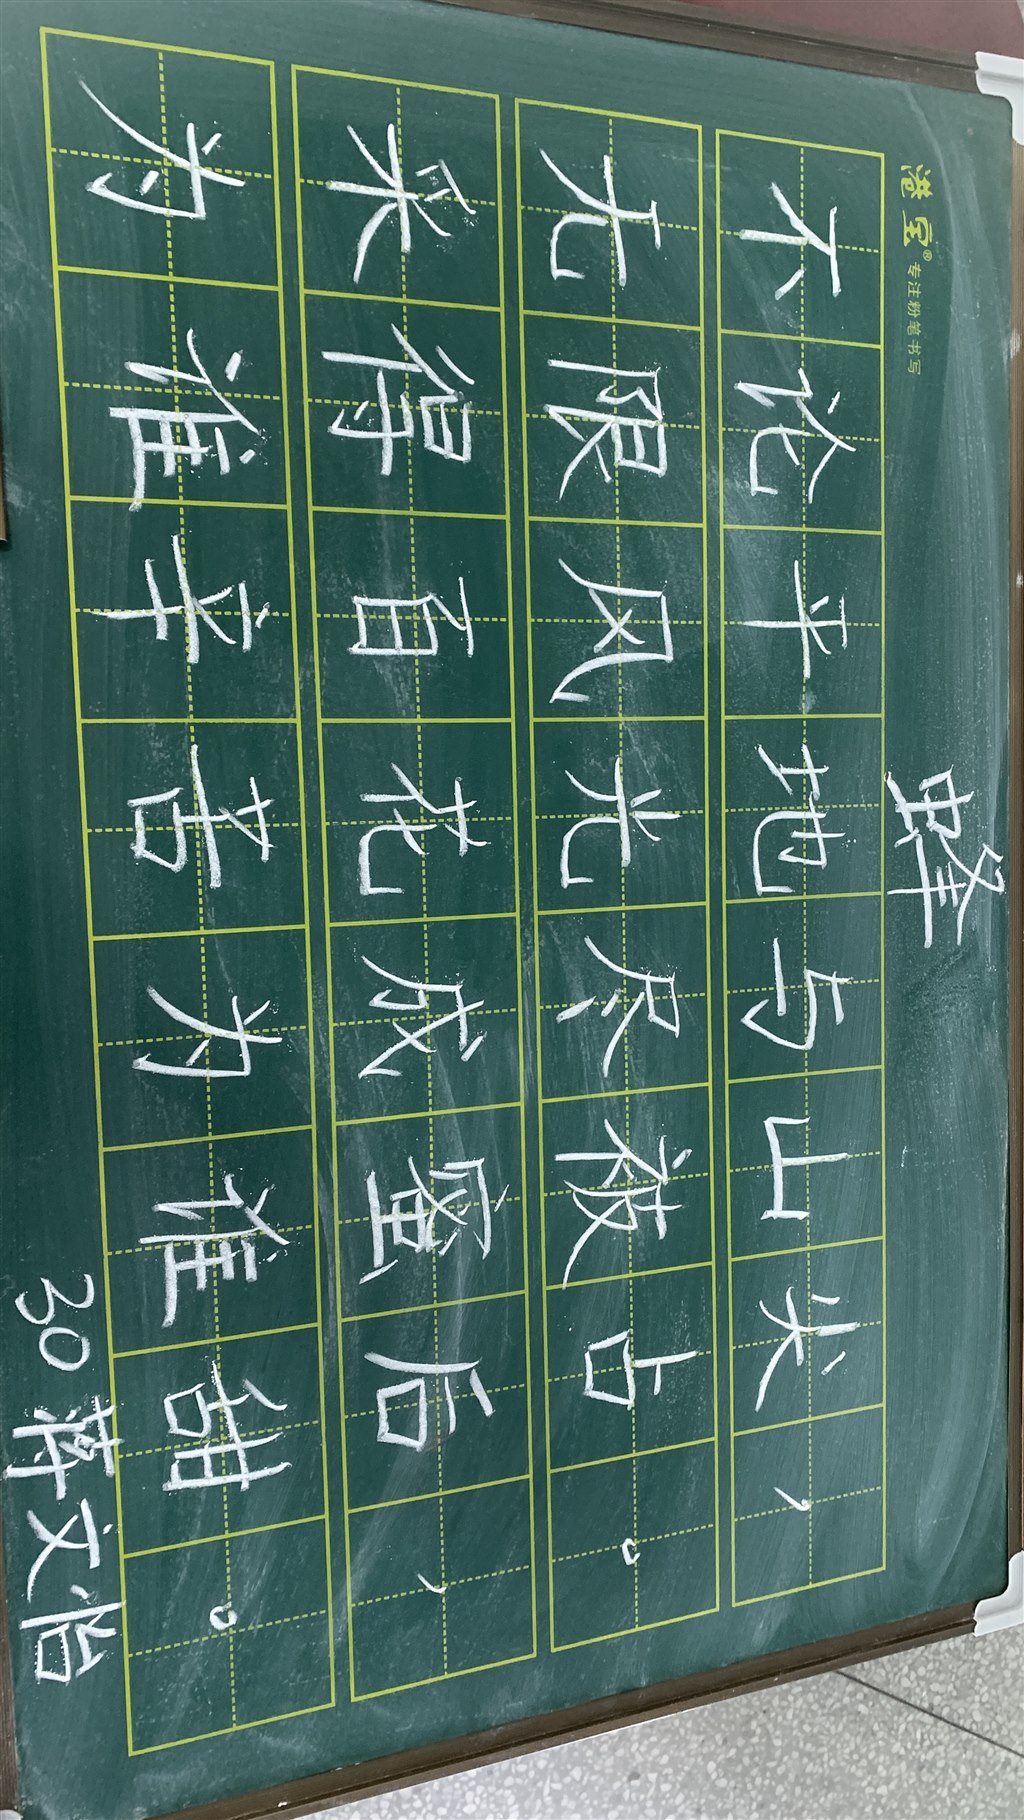 港宝® 专注粉笔书写
蜂
不论平地与山尖，
无限风光尽被占。
采得百花成蜜后，
为谁辛苦为谁甜。
30 蒋文怡